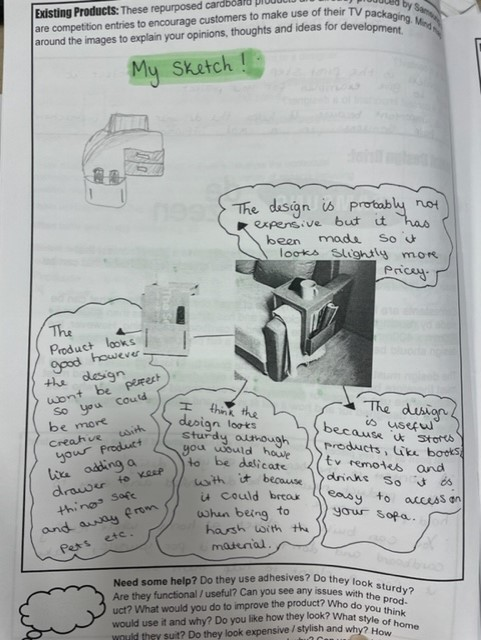 Existing Products: These repurposed cardboard products are already produced by Sams
are competition entries to encourage customers to make use of their TV packaging. Mind
around the images to explain your opinions, thoughts and ideas for development.
My Sketch!
The design is probably not
expensive but it has
been made so it
looks slightly more
pricey.
The
Product looks
good however
the design
wont be perfect
so you could
be more
creative with
your product
like adding a
drawer to keep
things safe
and away from
Pets etc.
I think the
design looks
sturdy although
you would have
to be delicate
with it because
it could break
when being to
harsh with the
material.
The design
is useful
because it stores
products, like books,
tv remotes and
drinks so it is
easy to access on
your sofa.
Need some help? Do they use adhesives? Do they look sturdy?
Are they functional / useful? Can you see any issues with the prod-
uct? What would you do to improve the product? Who do you think
would use it and why? Do you like how they look? What style of home
would they suit? Do they look expensive / stylish and why? How